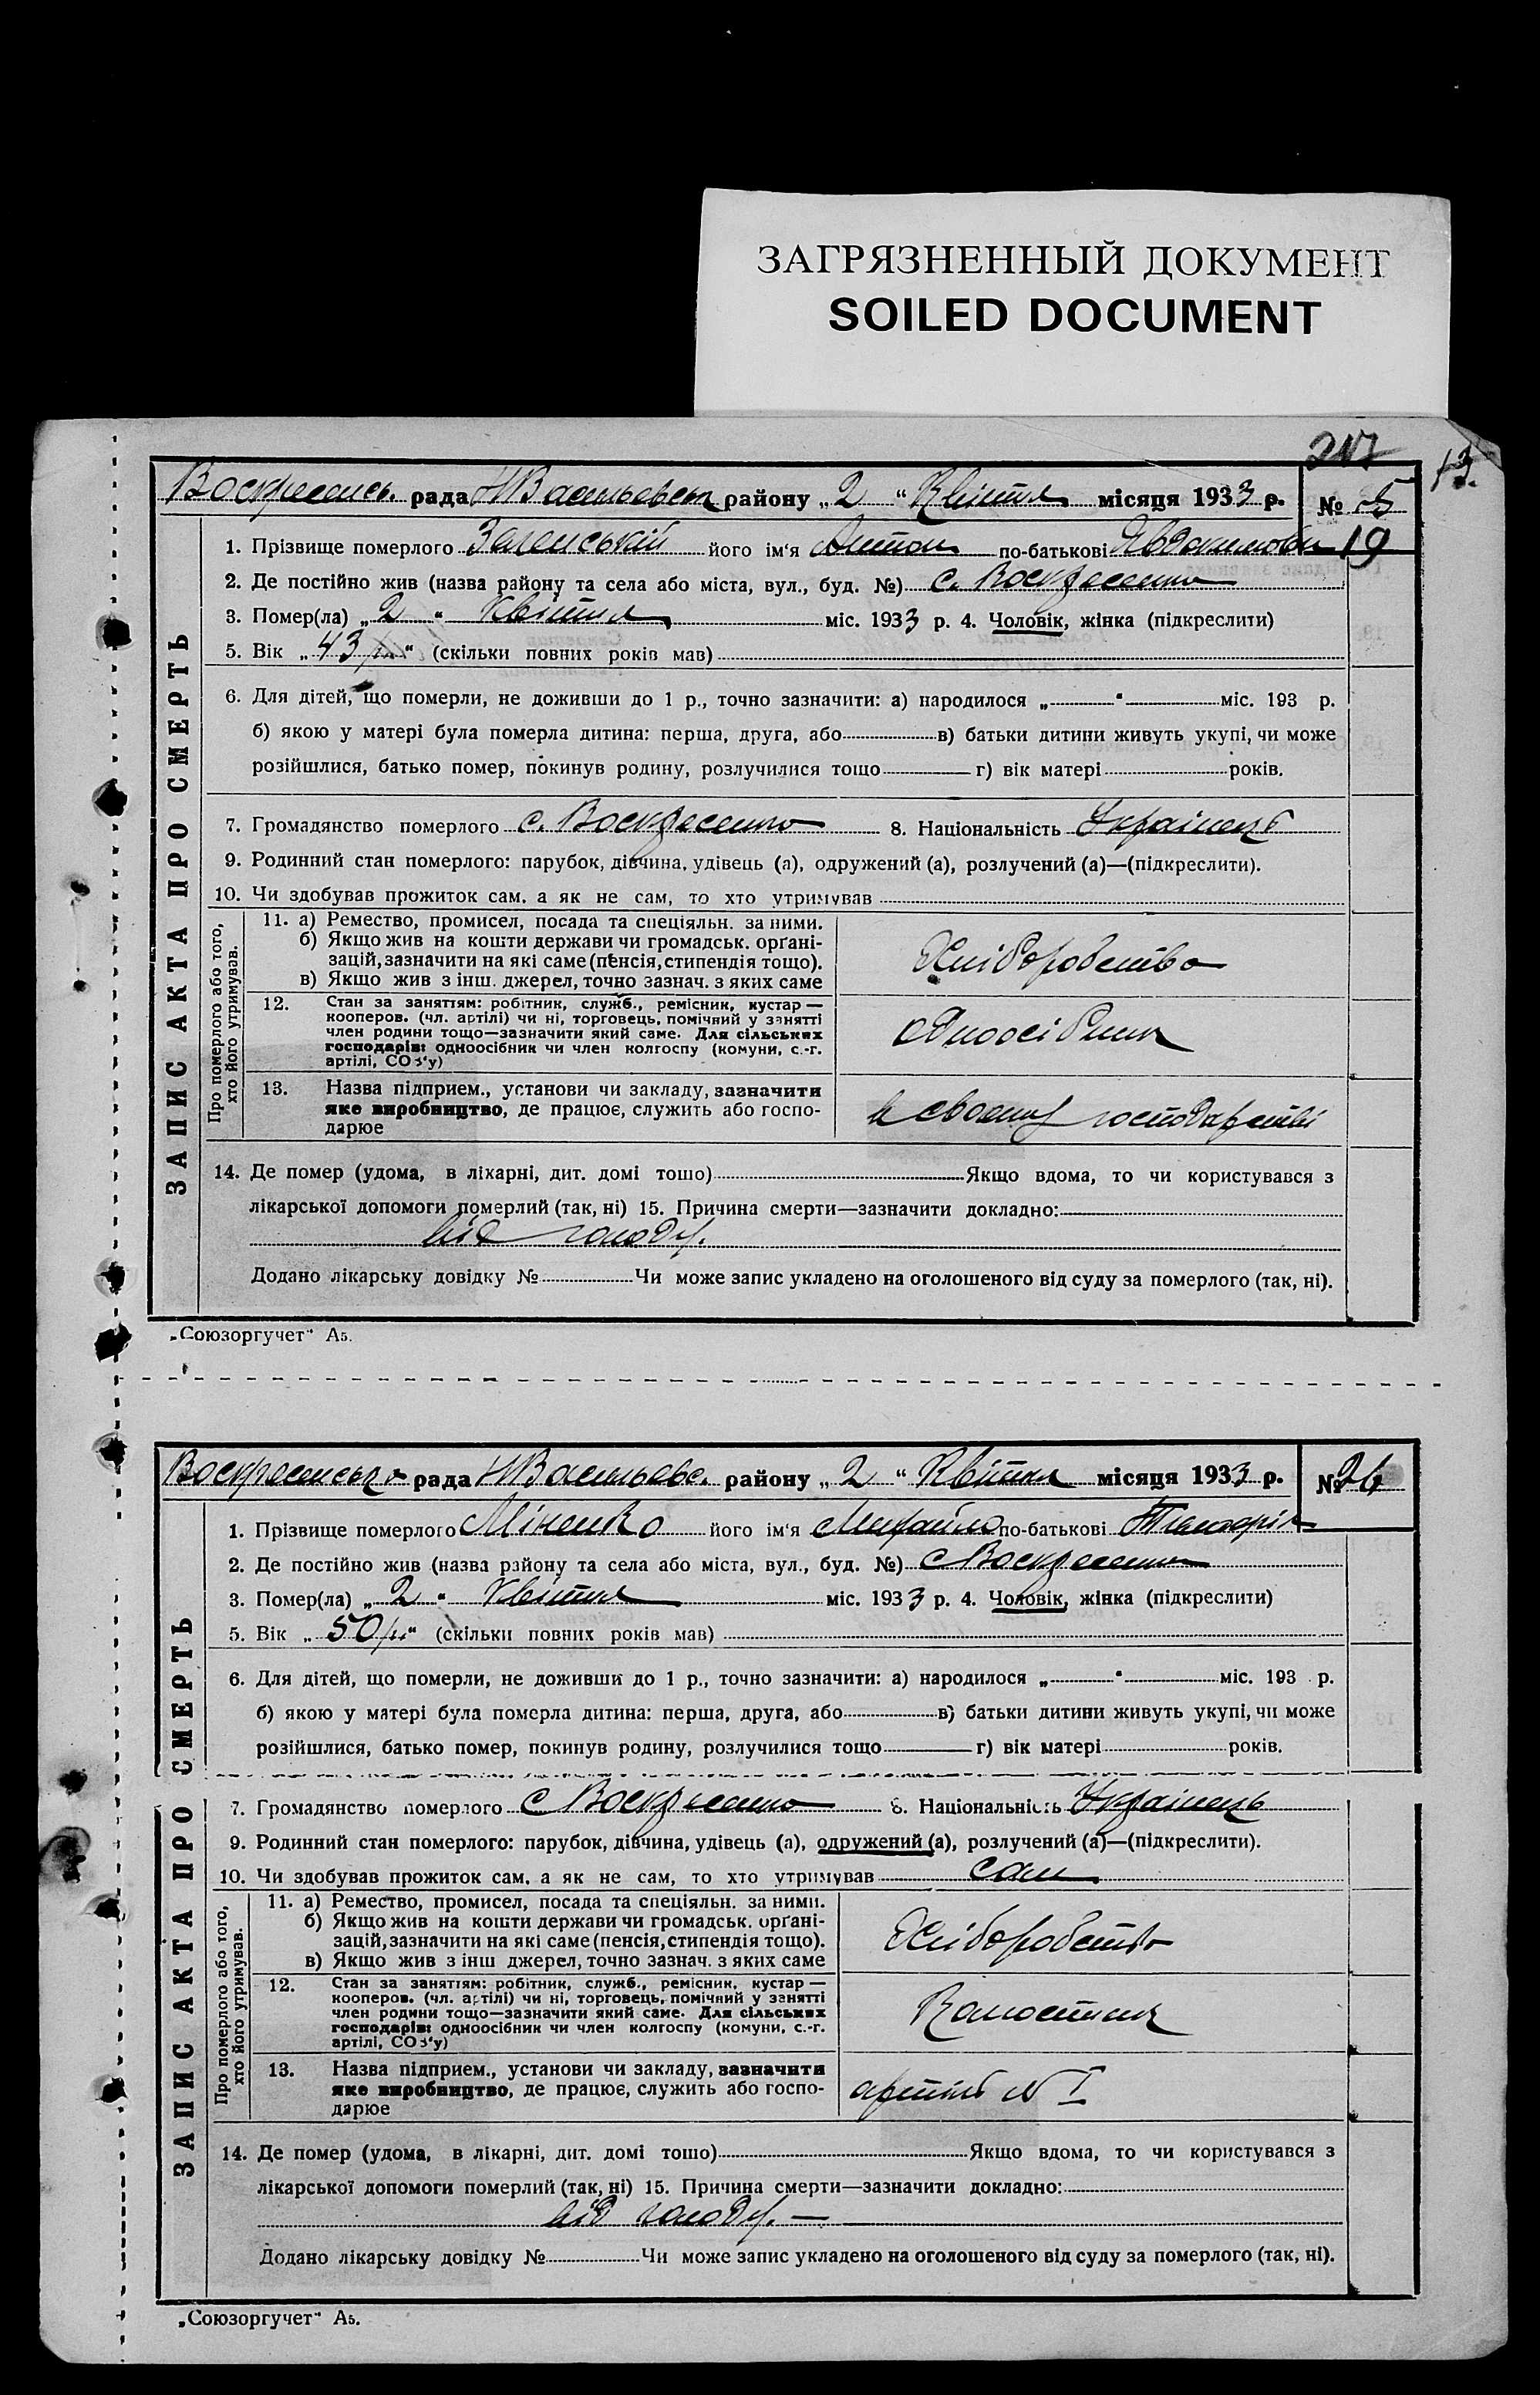 ЗАГРЯЗНЕННЫЙ ДОКУМЕНТ
SOILED DOCUMENT
217 13.
Воскресенсь. рада НВасильевськ району „2“ Квітня місяця 1933 р. № 5
19
ЗАПИС АКТА ПРО СМЕРТЬ
1. Прізвище померлого його ім'я Антон по-батькові Явдокимович
2. Де постійно жив (назва району та села або міста, вул., буд. №) с. Воскресенка
3. Помер(ла) „2“ Квітня міс. 1933 р. 4. Чоловік, жінка (підкреслити)
5. Вік „43 р.“ (скільки повних років мав)
6. Для дітей, що померли, не доживши до 1 р., точно зазначити: а) народилося „ “ міс. 193 р.
б) якою у матері була померла дитина: перша, друга, або в) батьки дитини живуть укупі, чи може
розійшлися, батько помер, покинув родину, розлучилися тощо г) вік матері років.
7. Громадянство померлого с. Воскресенка 8. Національність Українець
9. Родинний стан померлого: парубок, дівчина, удівець (а), одружений (а), розлучений (а)—(підкреслити).
10. Чи здобував прожиток сам, а як не сам, то хто утримував
Про померлого або того, хто його утримував.
11. а) Ремество, промисел, посада та спеціяльн. за ними.
б) Якщо жив на кошти держави чи громадськ. орґані-
зацій, зазначити на які саме (пенсія, стипендія тощо).
в) Якщо жив з інш. джерел, точно зазнач. з яких саме
Хліборобство
12. Стан за заняттям: робітник, служб., ремісник, кустар —
кооперов. (чл. артілі) чи ні, торговець, помічний у занятті
член родини тощо—зазначити який саме. Для сільських
господарів: одноосібник чи член колгоспу (комуни, с.-г.
артілі, СОЗ'у)
одноосібник
13. Назва підприєм., установи чи закладу, зазначити
яке виробництво, де працює, служить або госпо-
дарює
в своему господарстві
14. Де помер (удома, в ліхарні, дит. домі тошо) Якщо вдома, то чи користувався з
лікарської допомоги померлий (так, ні) 15. Причина смерти—зазначити докладно:
від голоду.
Додано лікарську довідку № Чи може запис укладено на оголошеного від суду за померлого (так, ні).
„Союзоргучет“ А5.
Воскресенська рада НВасильевс. району „2“ Квітня місяця 1933 р. № 26
ЗАПИС АКТА ПРО СМЕРТЬ
1. Прізвище померлого Міненко його ім'я Михайло по-батькові
2. Де постійно жив (назва району та села або міста, вул., буд. №) с Воскресенка
3. Помер(ла) „2“ Квітня міс. 1933 р. 4. Чоловік, жінка (підкреслити)
5. Вік „50 р.“ (скільки повних років мав)
6. Для дітей, що померли, не доживши до 1 р., точно зазначити: а) народилося „ “ міс. 193 р.
б) якою у матері була померла дитина: перша, друга, або в) батьки дитини живуть укупі, чи може
розійшлися, батько помер, покинув родину, розлучилися тощо г) вік матері років.
7. Громадянство померлого с Воскресенка 8. Національність Українець
9. Родинний стан померлого: парубок, дівчина, удівець (а), одружений (а), розлучений (а)—(підкреслити).
10. Чи здобував прожиток сам, а як не сам, то хто утримував сам
Про померлого або того, хто його утримував.
11. а) Ремество, промисел, посада та спеціяльн. за ними.
б) Якщо жив на кошти держави чи громадськ. орґані-
зацій, зазначити на які саме (пенсія, стипендія тощо).
в) Якщо жив з інш джерел, точно зазнач. з яких саме
Хліборобство
12. Стан за заняттям: робітник, служб., ремісник, кустар —
кооперов. (чл. артілі) чи ні, торговець, помічний у занятті
член родини тощо—зазначити який саме. Для сільських
господарів: одноосібник чи член колгоспу (комуни, с.-г.
артілі, СОЗ'у)
13. Назва підприєм., установи чи закладу, зазначити
яке виробництво, де працює, служить або госпо-
дарює
артіль № I
14. Де помер (удома, в лікарні, дит. домі тошо) Якщо вдома, то чи користувався з
лікарської допомоги померлий (так, ні) 15. Причина смерти—зазначити докладно:
від голоду. —
Додано лікарську довідку № Чи може запис укладено на оголошеного від суду за померлого (так, ні).
„Союзоргучет“ А5.